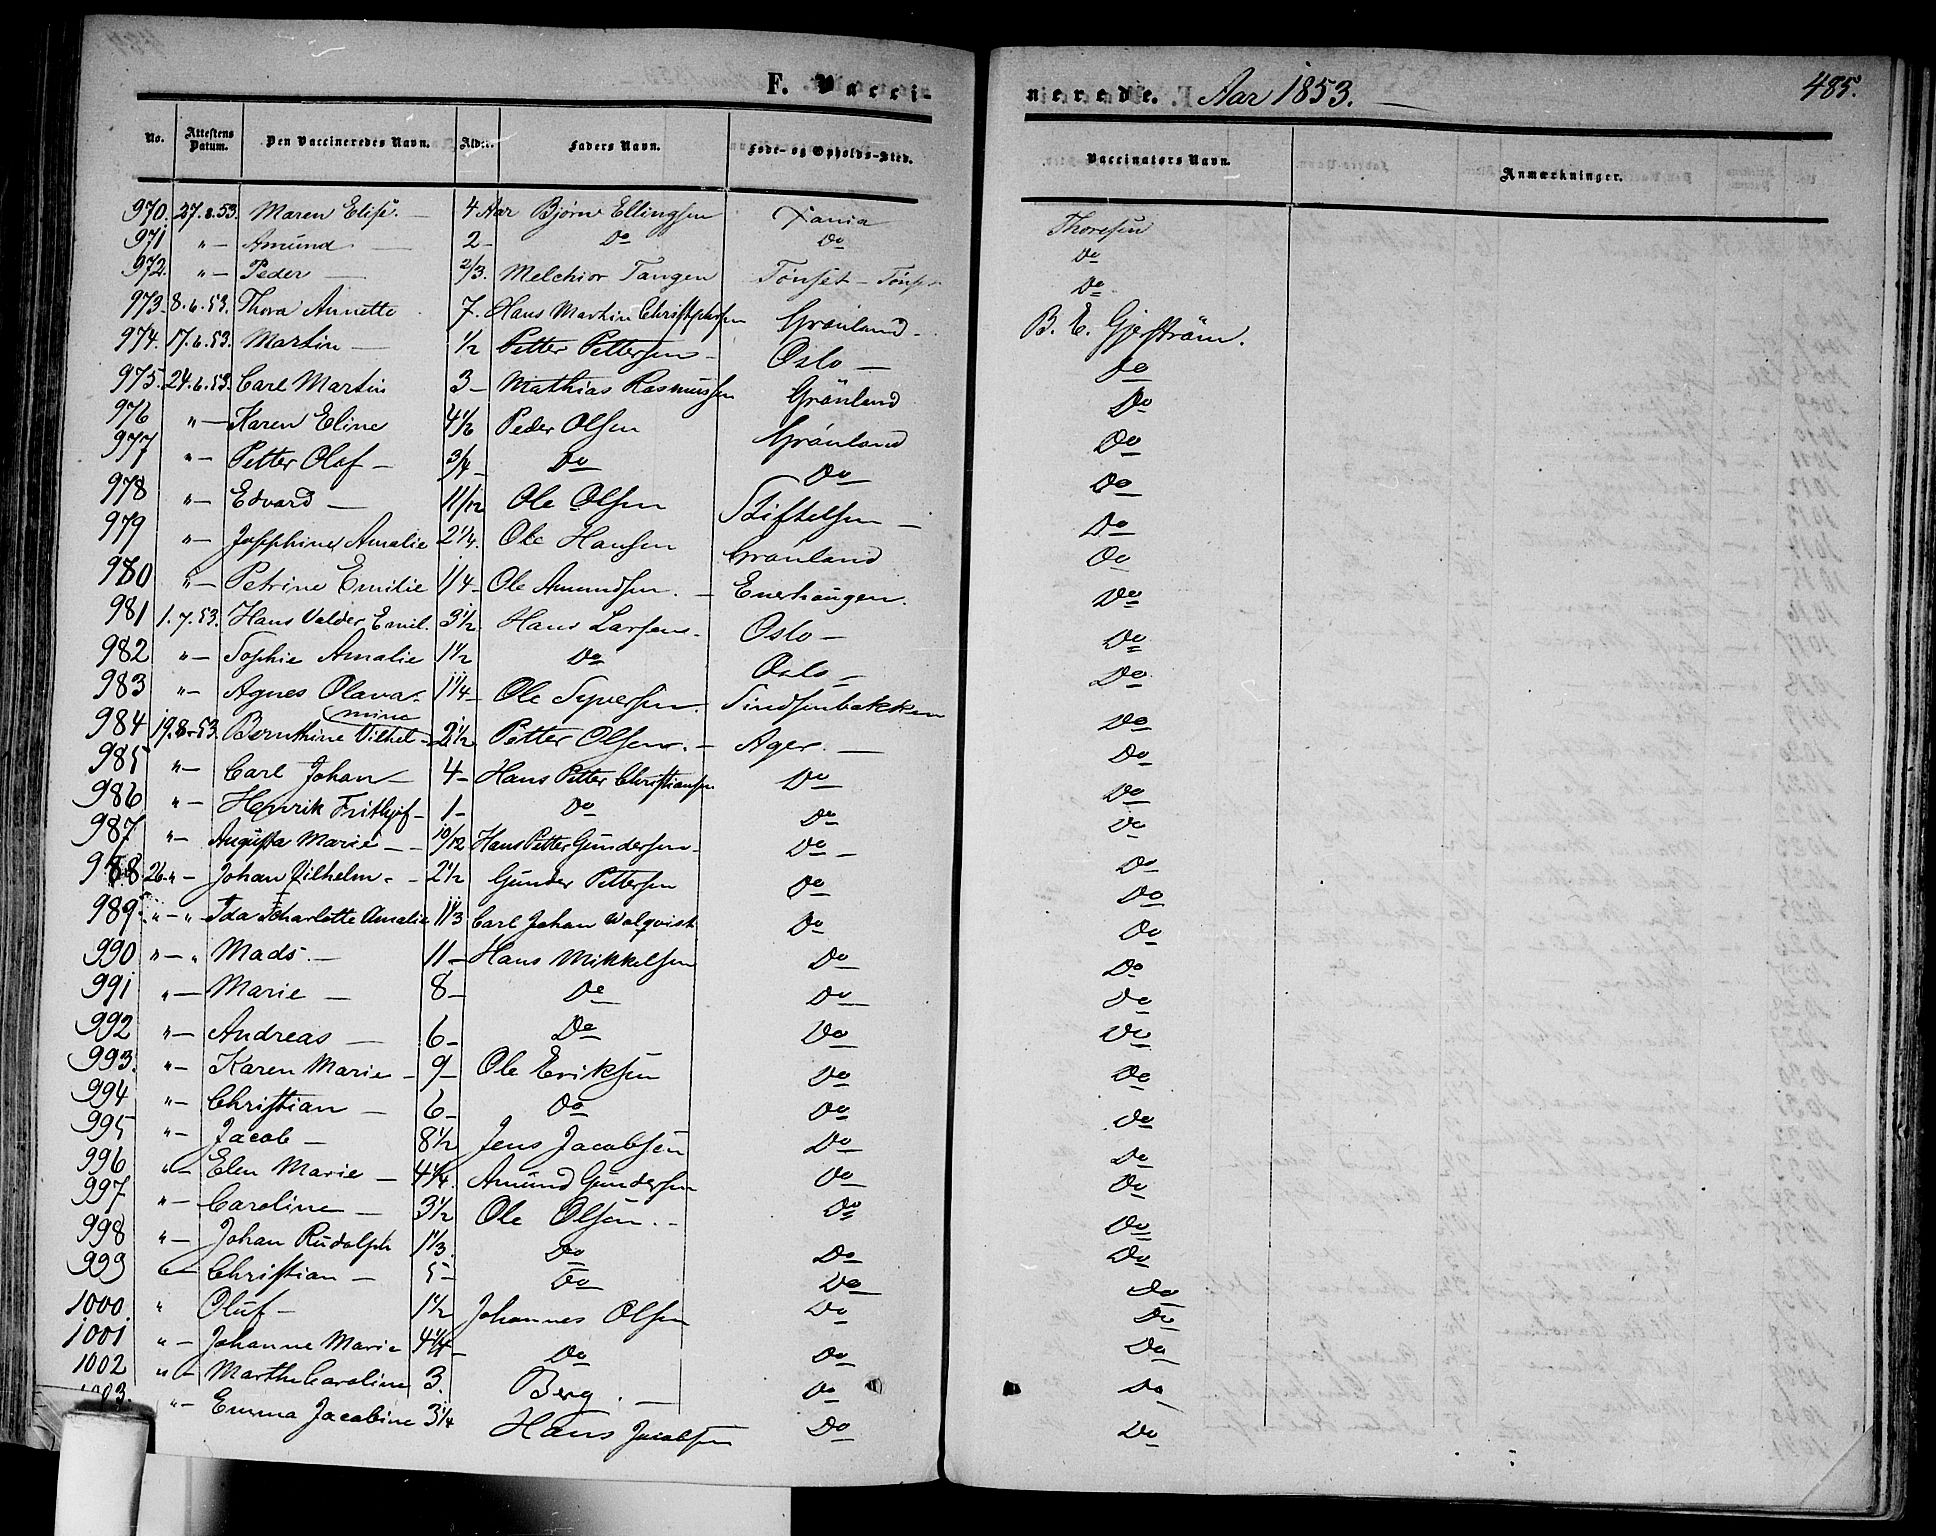 F. Vacci-
nerede. Aar 1853. 485.
No. Attestens Datum. Den Vaccineredes Navn. Alder. Faders Navn. Føde- og Opholds-Sted. Vaccinators Navn. Anmærkninger.
970. 27.8.53. Maren Elise. — 4 Aar Bjørn Ellingsen Xania Thoresen
971 " — Amund 2 — Do Do Do
972. " — Peder — 2/3. Melchior Tangen Tønset — Tønset Do
973. 8.6.53. Thora Annette 7. Hans Martin Christophersen Grønland — B. E. Gjeström.
974. 17.6.53. Martin — 1/2 Petter Pettersen — Oslo — Do
975. 24.6.53. Carl Martin 3 — Mathias Rasmussen Grønland Do
976 " — Karen Eline 4 1/2 Peder Olsen Grønland Do
977 " — Petter Olaf — 3/4 — Do Do Do
978 " — Edvard — 11/12 Ole Olsen Stiftelsen — Do
979 " — Josephine Amalie 2 1/4. Ole Hansen Grønland Do
980 " — Petrine Emilie 1 1/4 — Ole Amundsen. — Enerhaugen. Do
981 1.7.53. Hans Valder Emil. 3 1/2 Hans Larsen — Oslo — Do
982 " — Sophie Amalie 1 1/2 Do Oslo — Do
983 " — Agnes Olava — 1 1/4 — Ole Syversen. Sindsenbakken Do
984 19.8.53. Bernthine Vilhel- mine 2 1/2 Petter Olsen. — Ager. — Do
985 " — Carl Johan — 4 — Hans Petter Christiansen Do Do
986 " — Henrik Frithjof — 1 — Do Do Do
987 " — Augusta Marie — 10/12 Hans Petter Gundersen — Do — Do
988. 26. " — Johan Vilhelm. — 2 1/2 Gunder Pettersen Do Do
989. " — " Ida Charlotte Amalie 1 1/3 Carl Johan Walqvist Do Do
990 " — " Mads. — 11 — Hans Mikkelsen Do Do
991 " — Marie — 8 — Do Do Do
992 " — Andreas — 6 — Do Do Do
993. " — Karen Marie — 9 — Ole Eriksen Do Do
994 " — Christian — 6 — Do Do Do
995 " — Jacob — 8 1/2 Jens Jacobsen Do Do
996 " — Elen Marie — 4 1/4. Amund Gundersen Do Do
997 " — Caroline — 3 1/2 Ole Olsen. — Do Do
998 " — Johan Rudolph 1 1/3. Do Do Do
999 " — Christian — 5 — Do Do Do
1000 " Oluf — 1 1/2 Johannes Olsen Do Do
1001 " — Johanne Marie 4 1/4 — Do Do Do
1002 " — Marthe Caroline 3. Berg. — Do Do
1003. " — Emma Jacobine 3 1/4 Hans Jacobsen Do Do